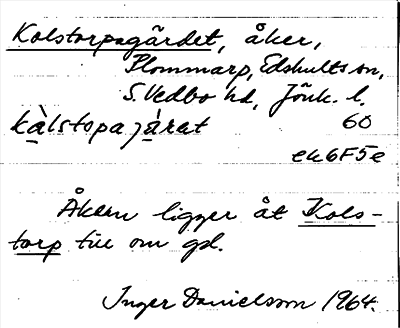 Kolstorpagärdet, åker,
Plommarp, Edshults sn,
S. Vedbo hd, Jönk. l.
kàlstopajárat 60
ek6F5e
Åkern ligger åt Kols-
torp till om gd.
Inger Danielsson 1964.